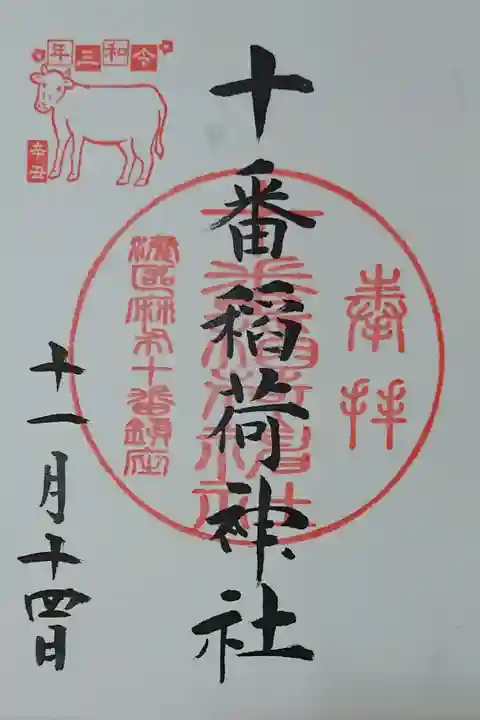 奉拝
十番稲荷神社
十番稲荷神社
港区麻布十番鎮座
令和三年
辛丑
十一月十四日